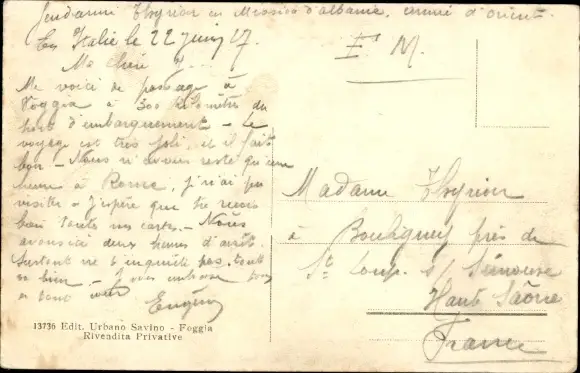 Gendarme Thyrion en Mission d'albanie, armée d'orient
En Italie le 22 juin 17.
Ma chère Y...
Me voici de passage à
Foggia à 300 kilomètres du
port d'embarquement - Le
voyage est très joli, et il fait
bon - Nous n'avons resté qu'une
heure à Rome, j'ai pu
visiter - J'espère que tu recois
bien toutes mes cartes - Nous
avons ici deux heures d'arrêt.
Surtout ne t'inquiète pas, tout
va bien - Je vous embrasse tous
Eugène
F. M.
Madame Thyrion
à Bouligney près de
St Loup s/ Semouse
Haute Saône
France
13736 Edit. Urbano Savino - Foggia
Rivendita Privative